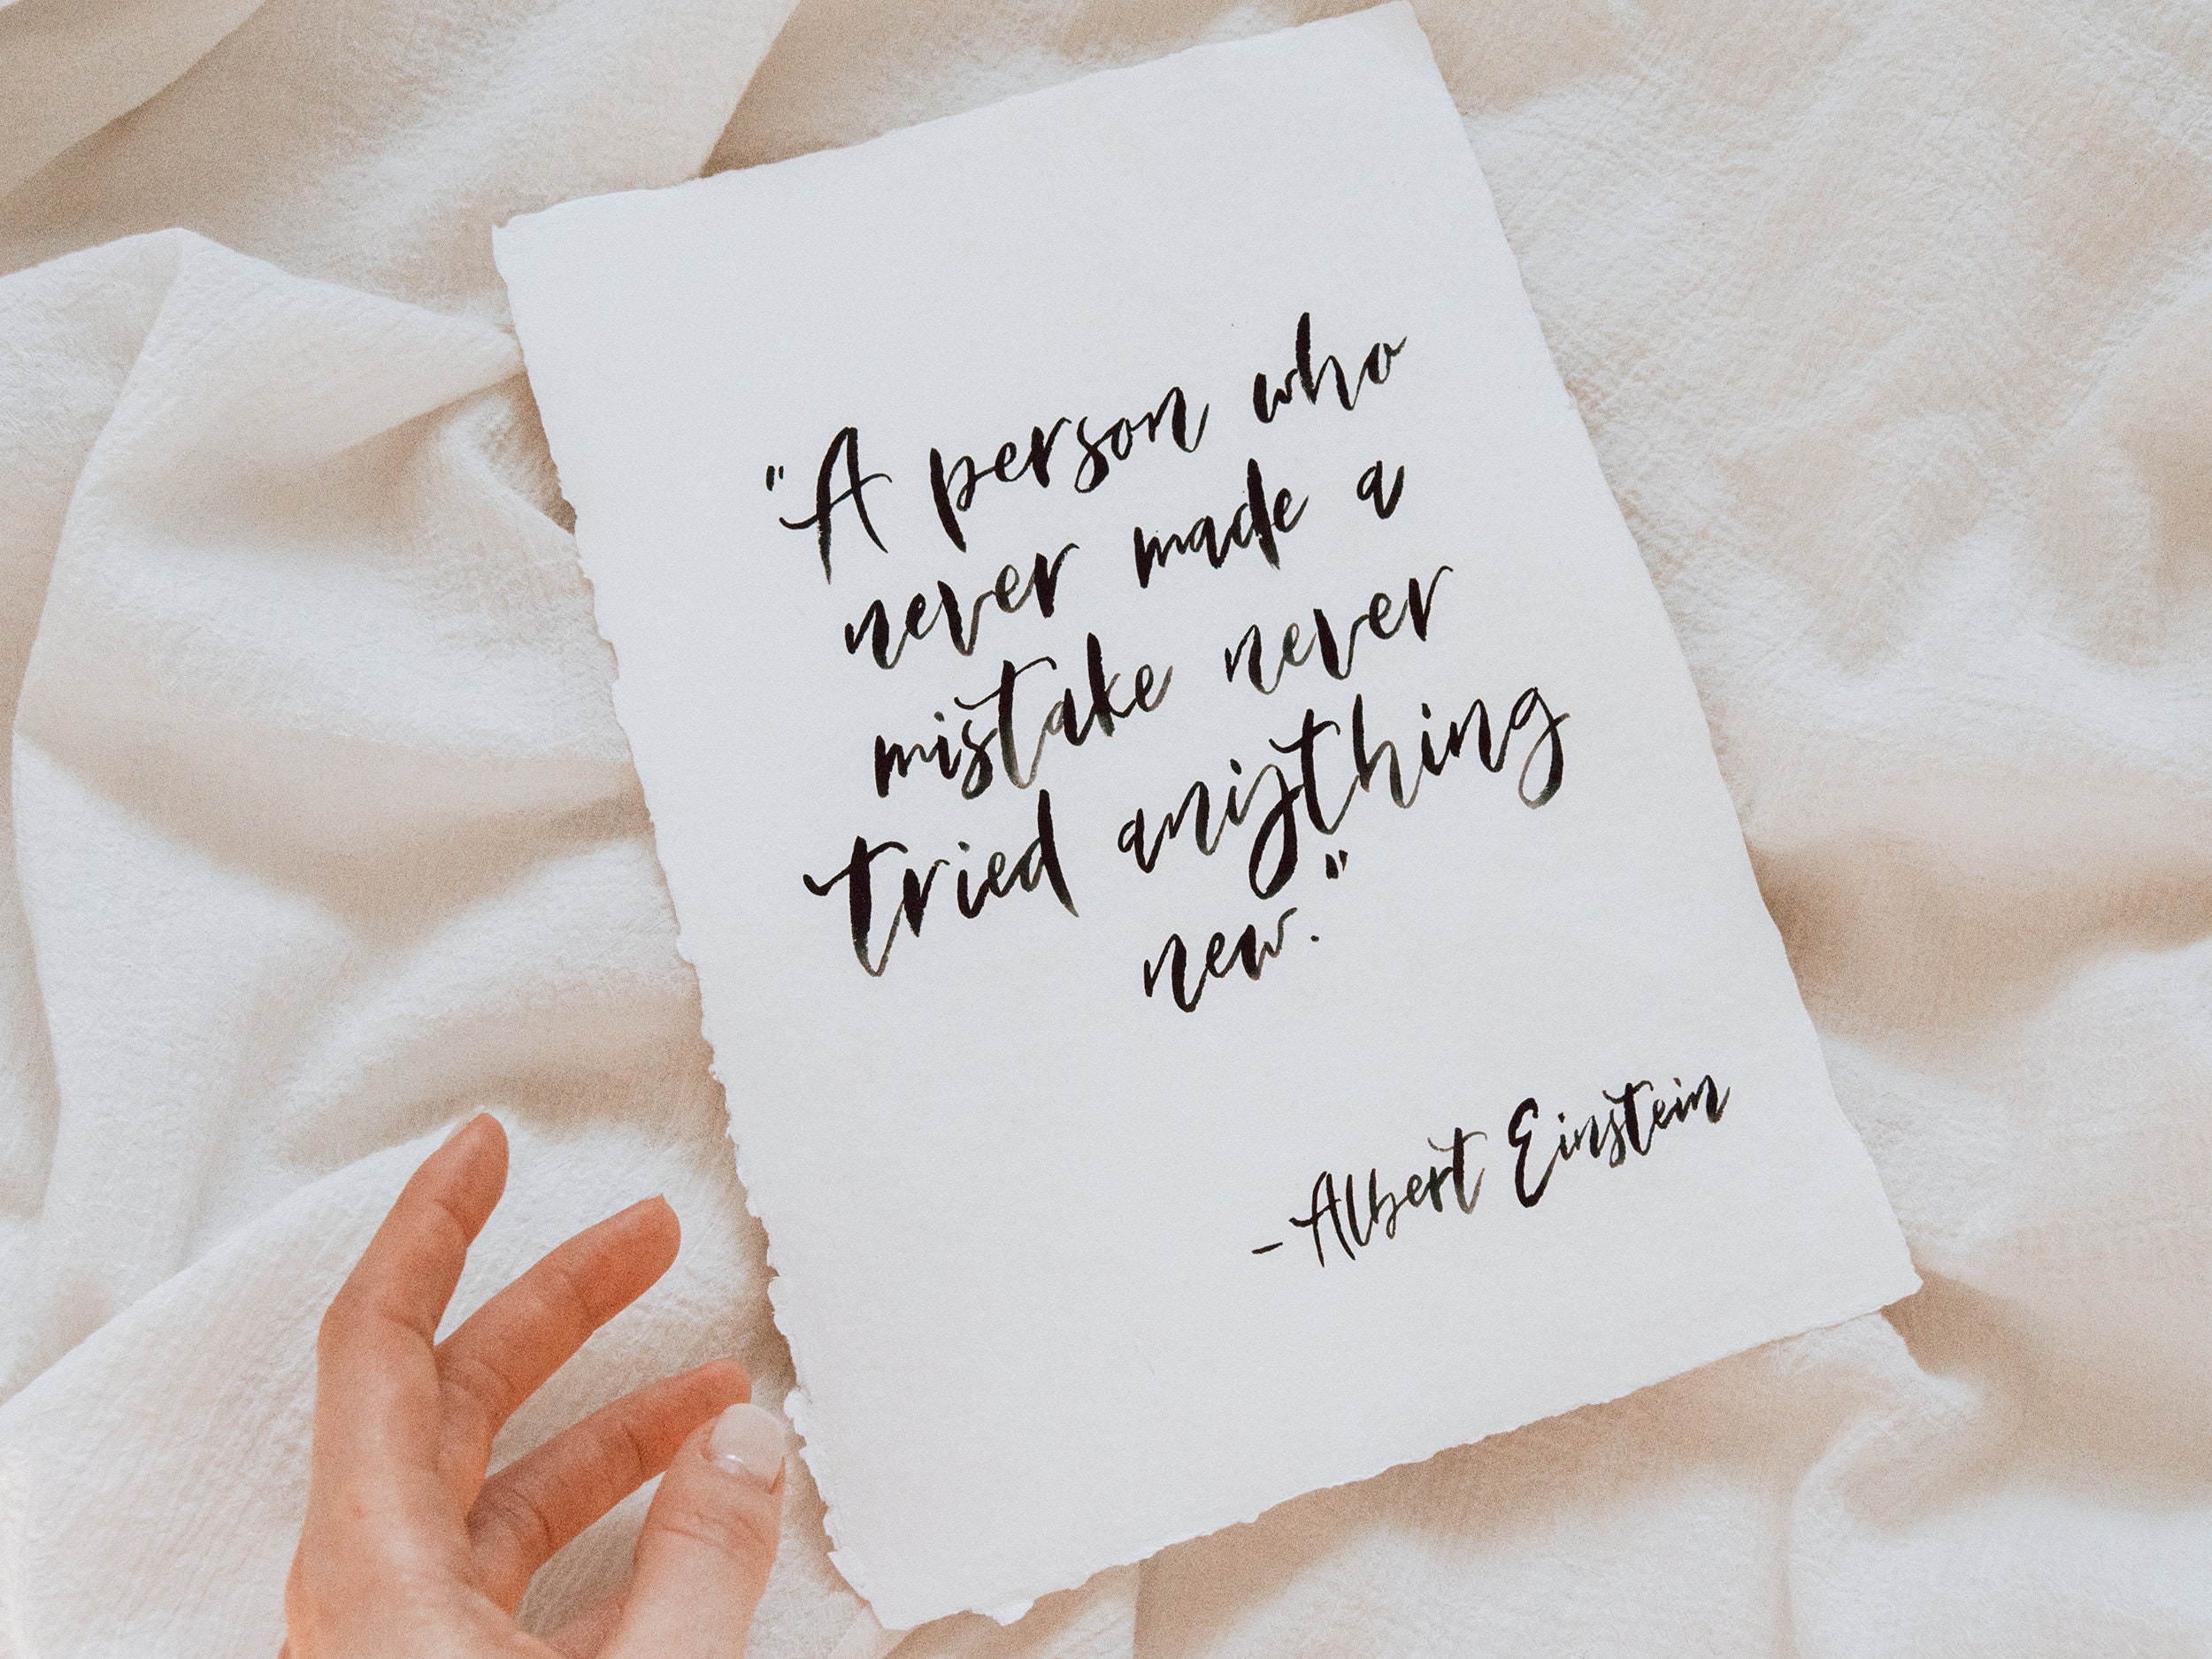 "A person who
never made a
mistake never
tried anything
new."
-Albert Einstein